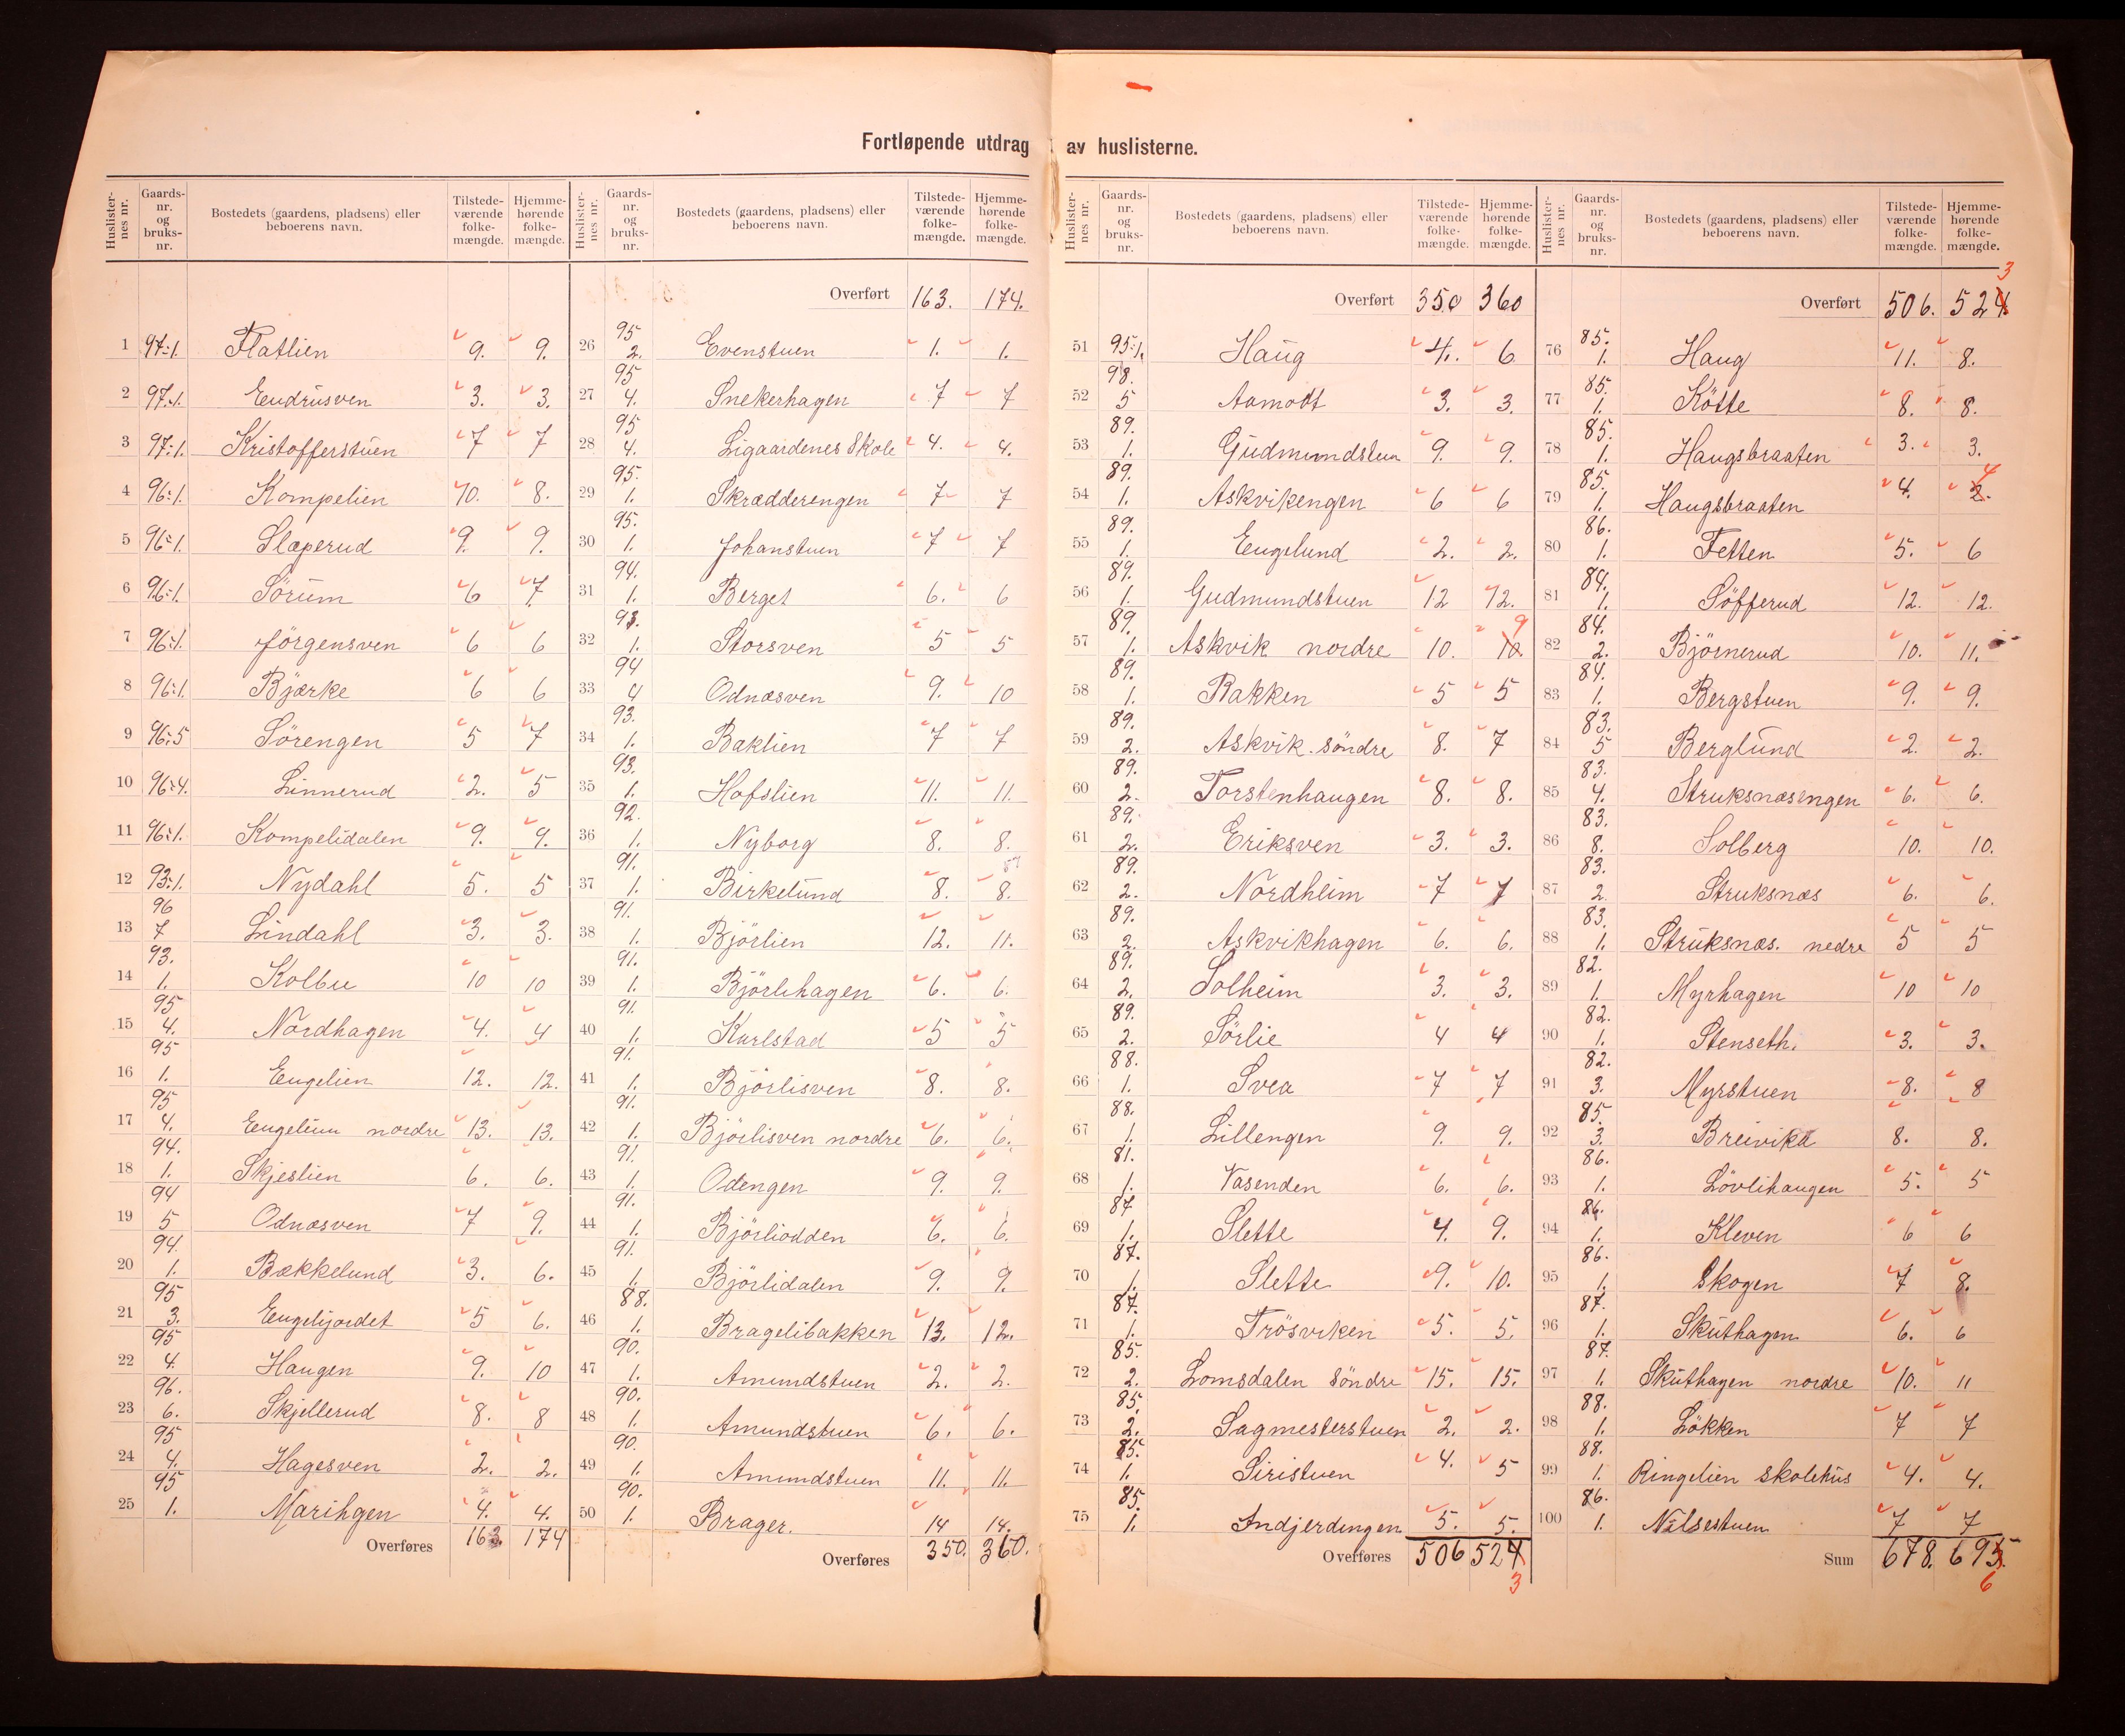 Fortløpende utdrag av huslisterne.
Huslister-nes nr. | Gaards-nr. og bruks-nr. | Bostedets (gaardens, pladsens) eller beboerens navn. | Tilstede-værende folke-mængde. | Hjemme-hørende folke-mængde.
1 97:1. Flatlien 9. 9.
2 97:1. Eudrusven 3. 3.
3 97:1. Kristofferstuen 7 7
4 96:1. Kompelien 10. 8.
5 96:1. Slæperud 9. 9.
6 96:1. Sörum 6 7.
7 96:1. Jörgensven 6 6
8 96:1. Bjærke 6 6
9 96:5 Sörengen 5 7
10 96:4. Linnerud 2. 5
11 96:1. Kompelidalen 9. 9.
12 93:1. Nydahl 5. 5
13 96 7 Lindahl 3. 3.
14 93. 1. Kolbu 10 10
15 95 4. Nordhagen 4. 4
16 95 1. Engelien 12. 12.
17 95 4. Engelien nordre 13. 13.
18 94. 1. Skjeslien 6. 6.
19 94 5 Odnæsven 7 9.
20 94. 1. Bækkelund 3. 6.
21 95 3. Engelijordet 5 6.
22 95 4. Haugen 9. 10
23 96. 6. Skjellerud 8. 8
24 95 4. Hagesven 2. 2.
25 95 1. Marihgen 4. 4.
Overføres 163. 174
Huslister-nes nr. | Gaards-nr. og bruks-nr. | Bostedets (gaardens, pladsens) eller beboerens navn. | Tilstede-værende folke-mængde. | Hjemme-hørende folke-mængde.
Overført 163. 174.
26 95 2. Evenstuen 1. 1.
27 95 4. Snekerhagen 7 7
28 95 4. Ligaardenes Skole 4. 4.
29 95. 1. Skrædderengen 7 7
30 95. 1. Johanstuen 7 7
31 94. 1. Berget 6. 6
32 93. 1. Storsven 5 5
33 94 4 Odnæsven 9. 10
34 93. 1. Baklien 7 7
35 93. 1. Hofslien 11. 11.
36 92. 1. Nyborg 8. 8.
37 91. 1. Birkelund 8. 8.
38 91. 1. Björlien 12. 11.
39 91. 1. Björlihagen 6. 6.
40 91. 1. Karlstad 5 5
41 91. 1. Björlisven 8. 8.
42 91. 1. Björlisven nordre 6. 6.
43 91. 1. Odengen 9. 9.
44 91. 1. Björliodden 6. 6.
45 91. 1. Björlidalen 9. 9.
46 88. 1. Bragelibakken 13. 12.
47 90. 1. Amundstuen 2. 2.
48 90. 1. Amundstuen 6. 6.
49 90. 1. Amundstuen 11. 11.
50 90. 1. Brager. 14 14.
Overføres 350. 360.
Huslister-nes nr. | Gaards-nr. og bruks-nr. | Bostedets (gaardens, pladsens) eller beboerens navn. | Tilstede-værende folke-mængde. | Hjemme-hørende folke-mængde.
Overført 350 360
51 95:1. Haug 4. 6
52 98. 5 Aamodt 3. 3.
53 89. 1. Gudmundstuen 9. 9.
54 89. 1. Askvikengen 6 6
55 89. 1. Engelund 2. 2.
56 89. 1. Gudmundstuen 12 12.
57 89. 1. Askvik nordre 10. 10. 9
58 89. 1. Bakken 5 5
59 89. 2. Askvik söndre 8. 7
60 89. 2. Torstenhaugen 8. 8.
61 89. 2. Eriksven 3. 3.
62 89. 2. Nordheim 7 7
63 89. 2. Askvikhagen 6. 6.
64 89. 2. Solheim 3. 3.
65 89. 2. Sörlie 4 4
66 88. 1. Svea 7 7
67 88. 1. Lillengen 9. 9.
68 81. 1. Vasenden 6. 6.
69 87 1. Slette 4. 9.
70 87. 1. Slette 9. 10.
71 87. 1. Trösviken 5. 5.
72 85. 2. Lomsdalen söndre 15. 15.
73 85. 2. Sagmesterstuen 2. 2.
74 85. 1. Siristuen 4. 5
75 85. 1. Indjerdingen 5. 5.
Overføres 506 524 3
Huslister-nes nr. | Gaards-nr. og bruks-nr. | Bostedets (gaardens, pladsens) eller beboerens navn. | Tilstede-værende folke-mængde. | Hjemme-hørende folke-mængde.
Overført 506. 524 3
76 85. 1. Haug 11. 8.
77 85. 1. Kötte 8. 8.
78 85. 1. Haugsbraaten 3. 3.
79 85. 1. Haugsbraaten 4. 2. 4
80 86. 1. Fetten 5. 6
81 84. 1. Söfferud 12. 12.
82 84. 2. Björnerud 10. 11.
83 84. 1. Bergstuen 9. 9.
84 83. 5 Berglund 2. 2.
85 83. 4. Struksnæsengen 6. 6.
86 83. 8. Solberg 10. 10.
87 83. 2. Struksnæs 6. 6.
88 83. 1. Struksnæs. nedre 5 5
89 82. 1. Myrhagen 10 10
90 82. 1. Stenseth. 3. 3.
91 82. 3. Myrstuen 8. 8
92 85. 3. Breivika 8. 8.
93 86. 1. Lövlihaugen 5. 5
94 86. 1. Kleven 6 6
95 86. 1. Skogen 7 8.
96 87. 1. Skuthagen 6. 6
97 87. 1. Skuthagen nordre 10. 11
98 88. 1. Lökken 7 7
99 88. 1. Ringelien skolehus 4. 4.
100 86. 1. Nilsestuen 7 7
Sum 678. 695. 6